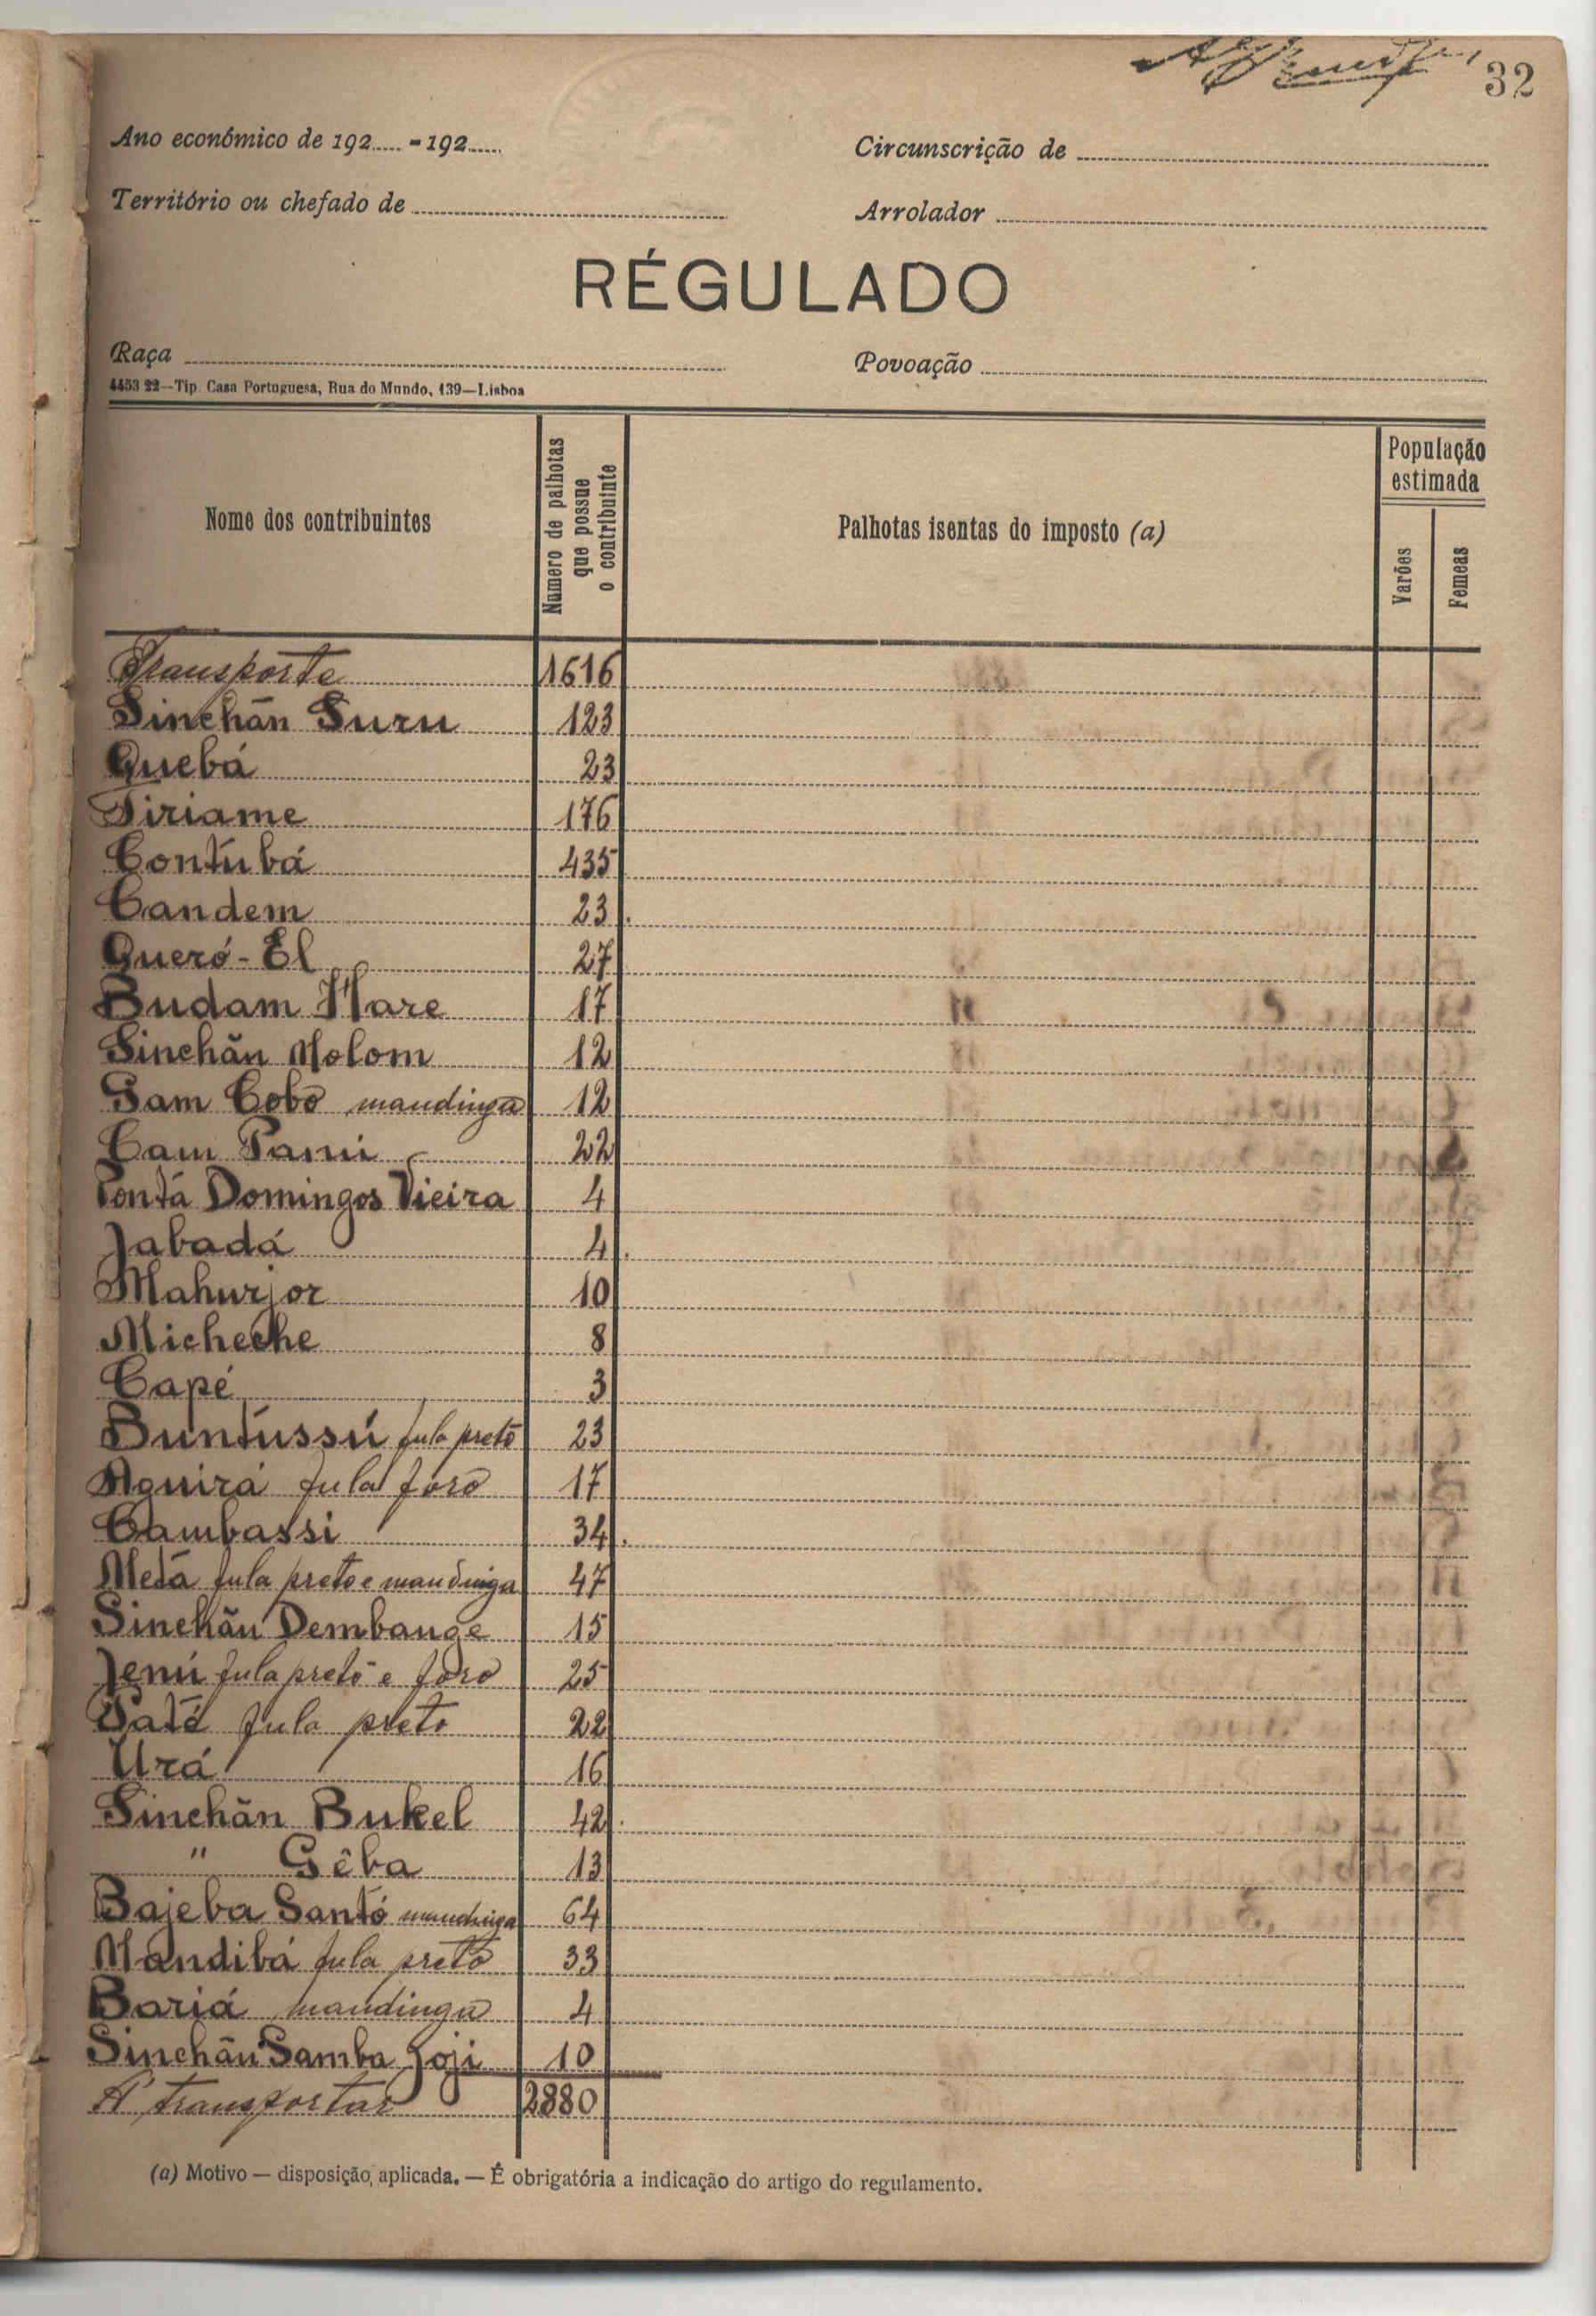 32
Ano económico de 192..... - 192.....
Circunscrição de
Território ou chefado de
Arrolador
RÉGULADO
Raça
Povoação
4453 22--Tip. Casa Portuguesa, Rua do Mundo, 139--Lisboa
Nome dos contribuintes
Número de palhotas que possue o contribuinte
Palhotas isentas do imposto (a)
População estimada
Varões
Femeas
Transporte 1616
Sinchãn Suru 123
Quebá 23
Tiriame 176
Contúbá 435
Candem 23
Queró-El 27
Budam Hare 17
Sinchãn Molom 12
Sam Cobo mandinga 12
Cam Pami 22
Pontá Domingos Vieira 4
Jabadá 4
Mahurjor 10
Micheche 8
Capé 3
Buntússú fula preto 23
Aguirá fula foro 17
Cambassi 34
Metá fula preto e mandinga 47
Sinchãn Dembange 15
Jenú fula preto e foro 25
Paté fula preto 22
Urá 16
Sinchãn Bukel 42
" Gêba 13
Bajeba Santó mandinga 64
Mandibá fula preto 33
Bariá mandinga 4
Sinchãn Samba Joji 10
A transportar 2880
(a) Motivo — disposição aplicada. — É obrigatória a indicação do artigo do regulamento.